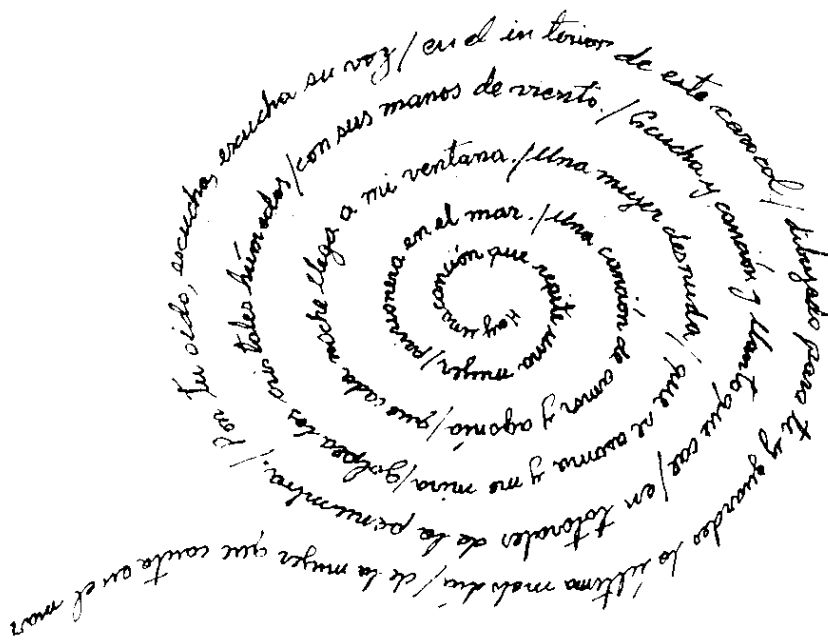 Hay una canción que repite una mujer/prisionera en el mar./Una canción de amor y agonía/que cada noche llega a mi ventana./Una mujer desnuda/que se asoma y me mira/golpea los cristales húmedos/con sus manos de viento./Escucha y canción y llanto que cae/en totorales de la penumbra./Pon tu oído, escucha, escucha su voz/en el interior de este caracol/dibujado para ti y guardes la última melodía/de la mujer que canta en el mar